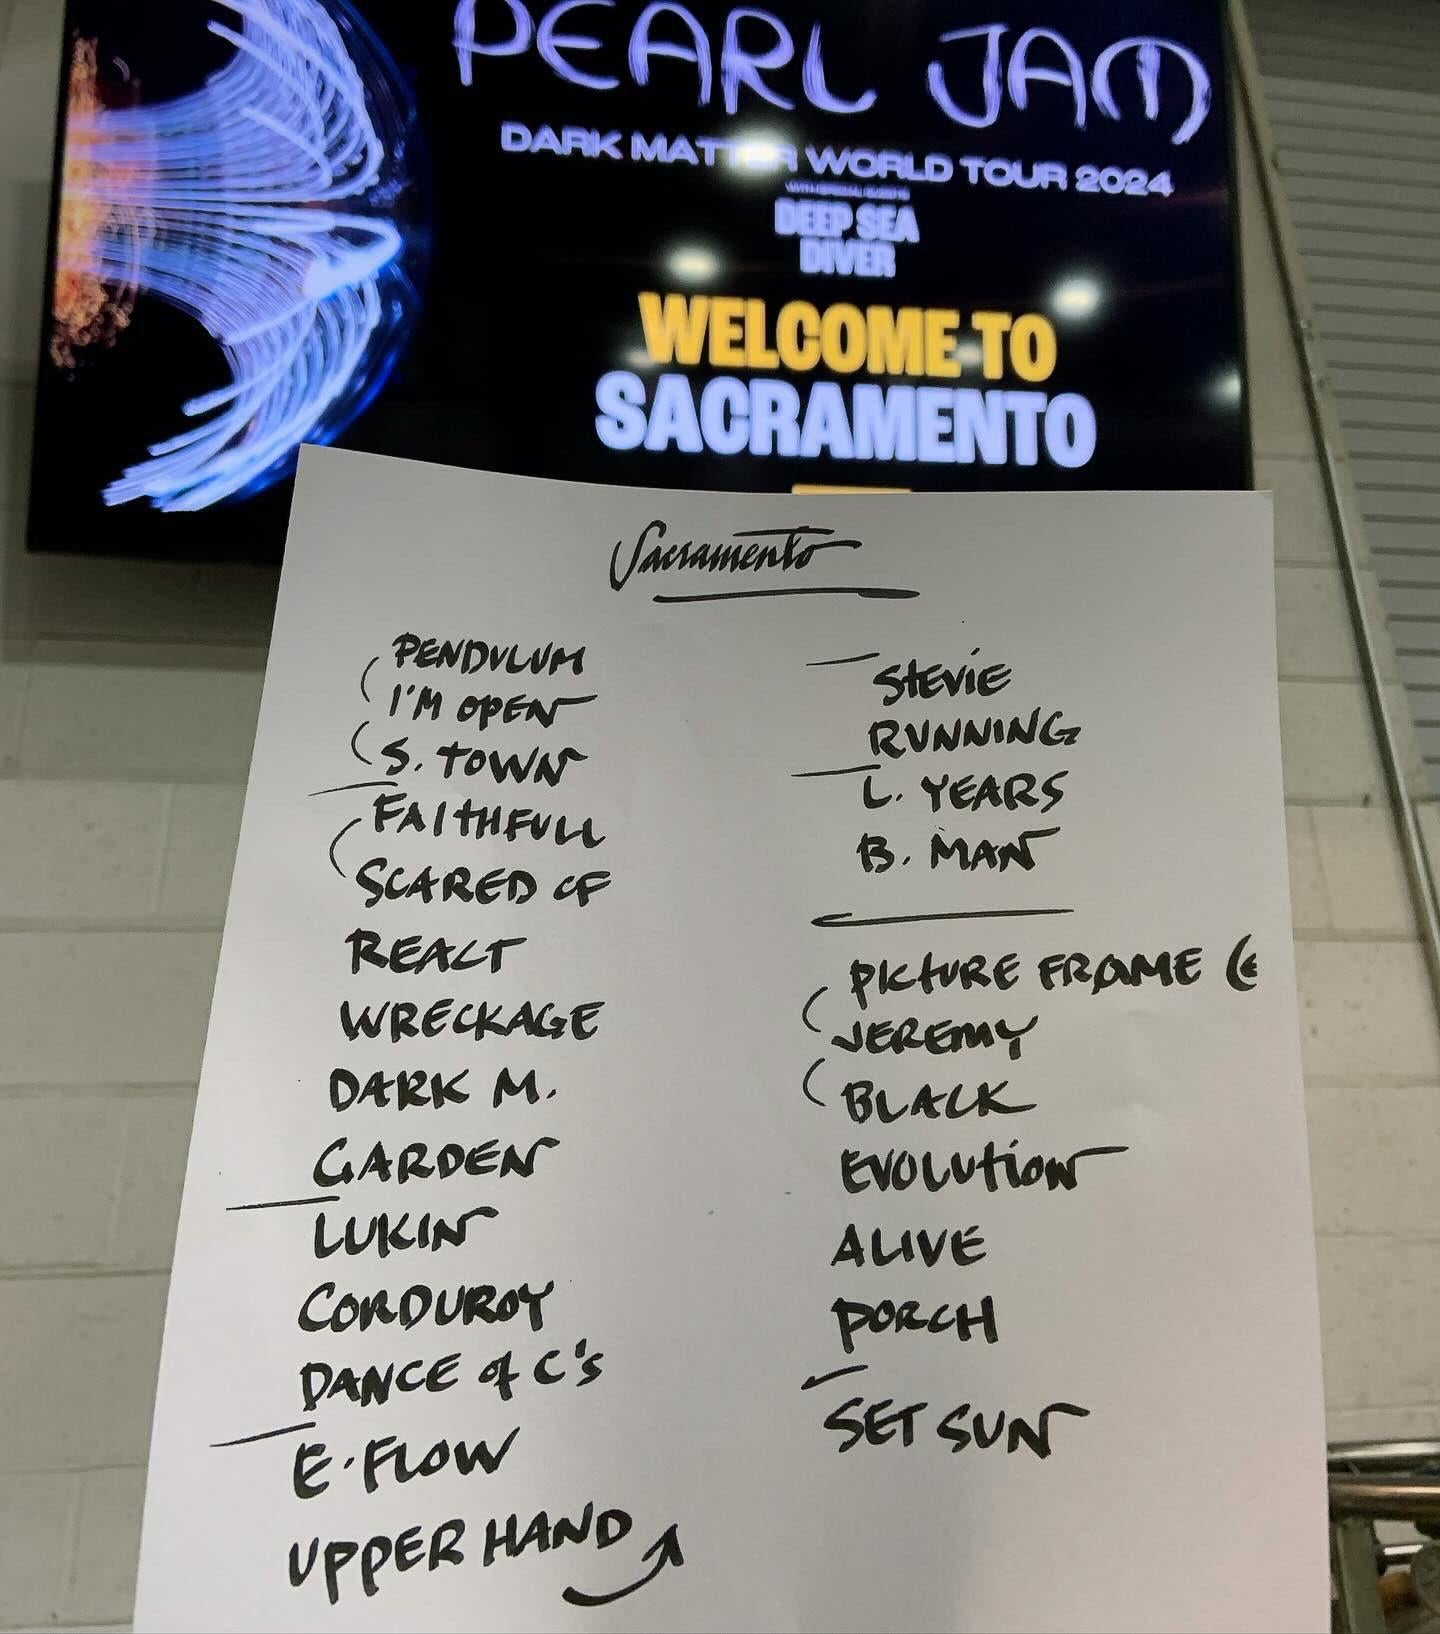 PEARL JAM
DARK MATTER WORLD TOUR 2024
WITH SPECIAL GUESTS
DEEP SEA
DIVER
WELCOME TO
SACRAMENTO
Sacramento
PENDULUM
I'M OPEN
S. TOWN
FAITHFULL
SCARED OF
REACT
WRECKAGE
DARK M.
GARDEN
LUKIN
CORDUROY
DANCE of C's
E. FLOW
UPPER HAND
STEVIE
RUNNING
L. YEARS
B. MAN
PICTURE FRAME (E
JEREMY
BLACK
EVOLUTION
ALIVE
PORCH
SET SUN